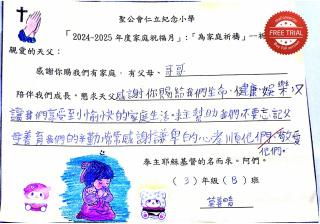 聖公會仁立紀念小學
「2024-2025年度家庭祝福月」:「為家庭祈禱」一祈
FREE TRIAL
親愛的天父:
感謝你賜我們有家庭,有父母、哥哥
陪伴我們成長。懇求天父感謝你賜給我們生命、健康娛樂,又
讓我們享受到愉快的家庭生活。求主幫助我們不要忘記父
母養育我們的辛勤,常常感謝謙卑的心孝順他們,敬愛
他們。
奉主耶穌基督的名而求。阿們。
(3)年級(B)班